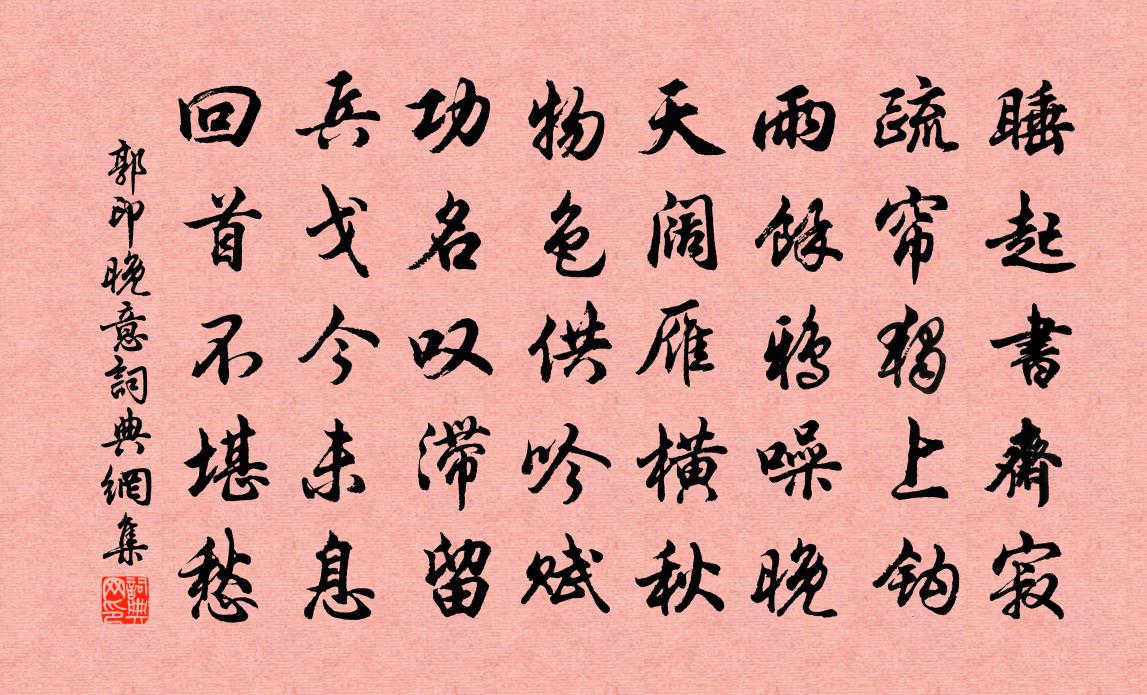 睡起書齋寂
疏帘獨上鈎
雨餘鴉噪晚
天阔雁橫秋
物色供吟赋
功名叹滞留
兵戈今未息
回首不堪愁
郭印晚意詞典網集